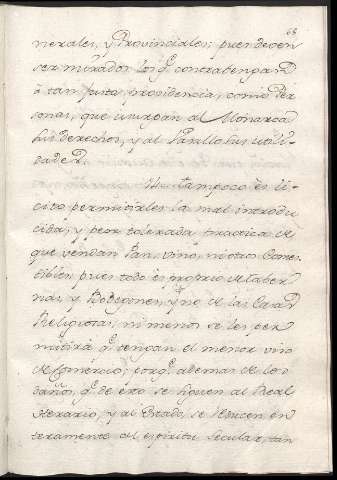 68
nerales, y Provinciales; pues deven
ser mirados los q.e contrabengan
à tan justa providencia, como Per
sonas, que usurpan al Monarca
sus derechos, y al Vasallo sus utili
dades.
Tampoco es li
cito permitirles la mal introdu
cida, y peor tolerada practica de
que vendan Pan, vino, ni otros Comes
tibles, pues todo es proprio de Taber
nas, y Bodegones, y no de las Casas
Religiosas; ni menos se les per
mitirà q.e tengan el menor vi
de Comercio; porq.e ademas de los
daños, q.e de esto se siguen al Real
Herario, y al Estado, se reducen en
teramente al espiritu secular, tan